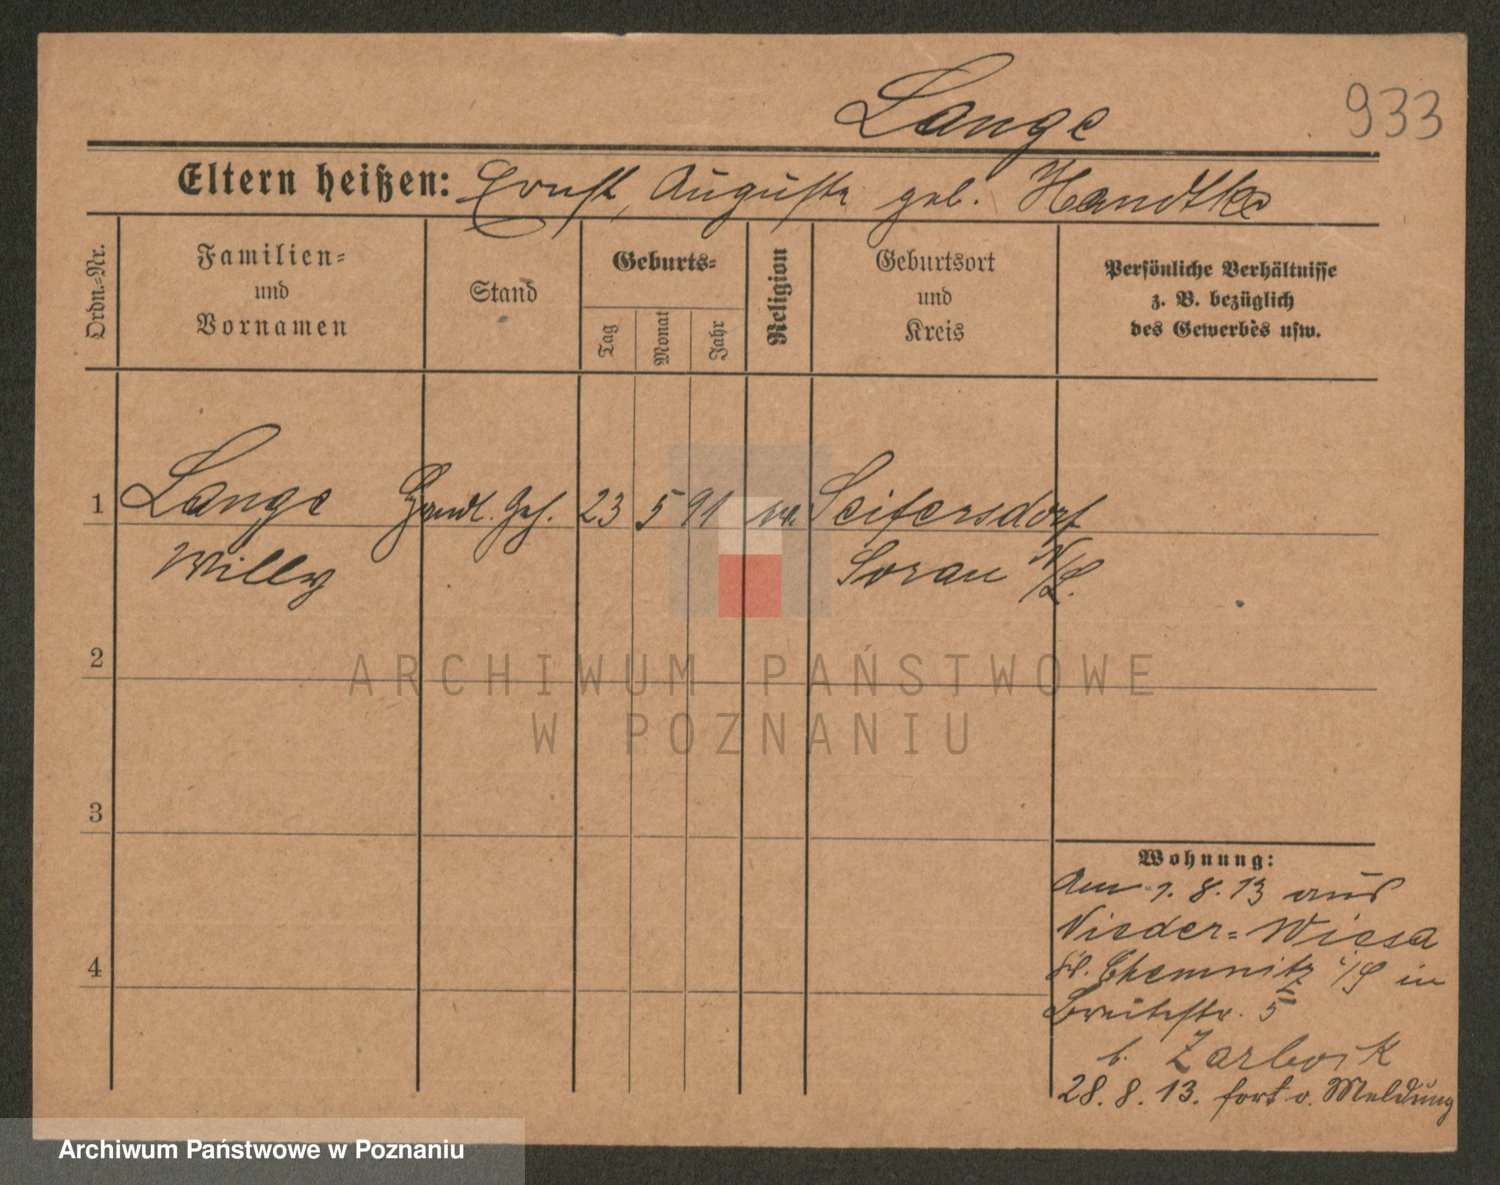 Lange
933
Eltern heißen: Ernst, Auguste geb. Handtke
Ordn.-Nr.
Familien-
und
Vornamen
Stand
Geburts-
Tag
Monat
Jahr
Religion
Geburtsort
und
Kreis
Persönliche Verhältnisse
z. B. bezüglich
des Gewerbes usw.
1
Lange Handl. Geh. 23 5 91 ev. Seifersdorf
Willy Sorau N/L.
2
ARCHIWUM PAŃSTWOWE
W POZNANIU
3
Wohnung:
Am 1. 8. 13 aus
Nieder-Wiesa
Chemnitz i/S in
4
Breitestr. 5
b. Zarbock
28. 8. 13. fort o. Meldung
Archiwum Państwowe w Poznaniu